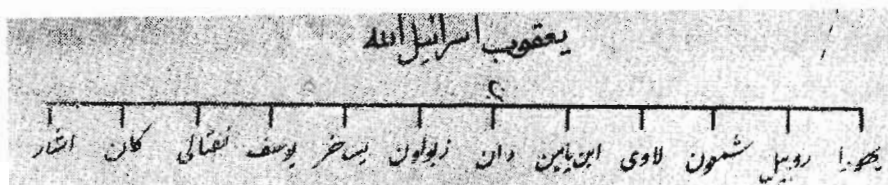 يعقوب اسرائيل الله
٢
يهودا روبيل شمعون لاوى ابن يامين دان زبولون يساخر يوسف نفتالى كان اشار